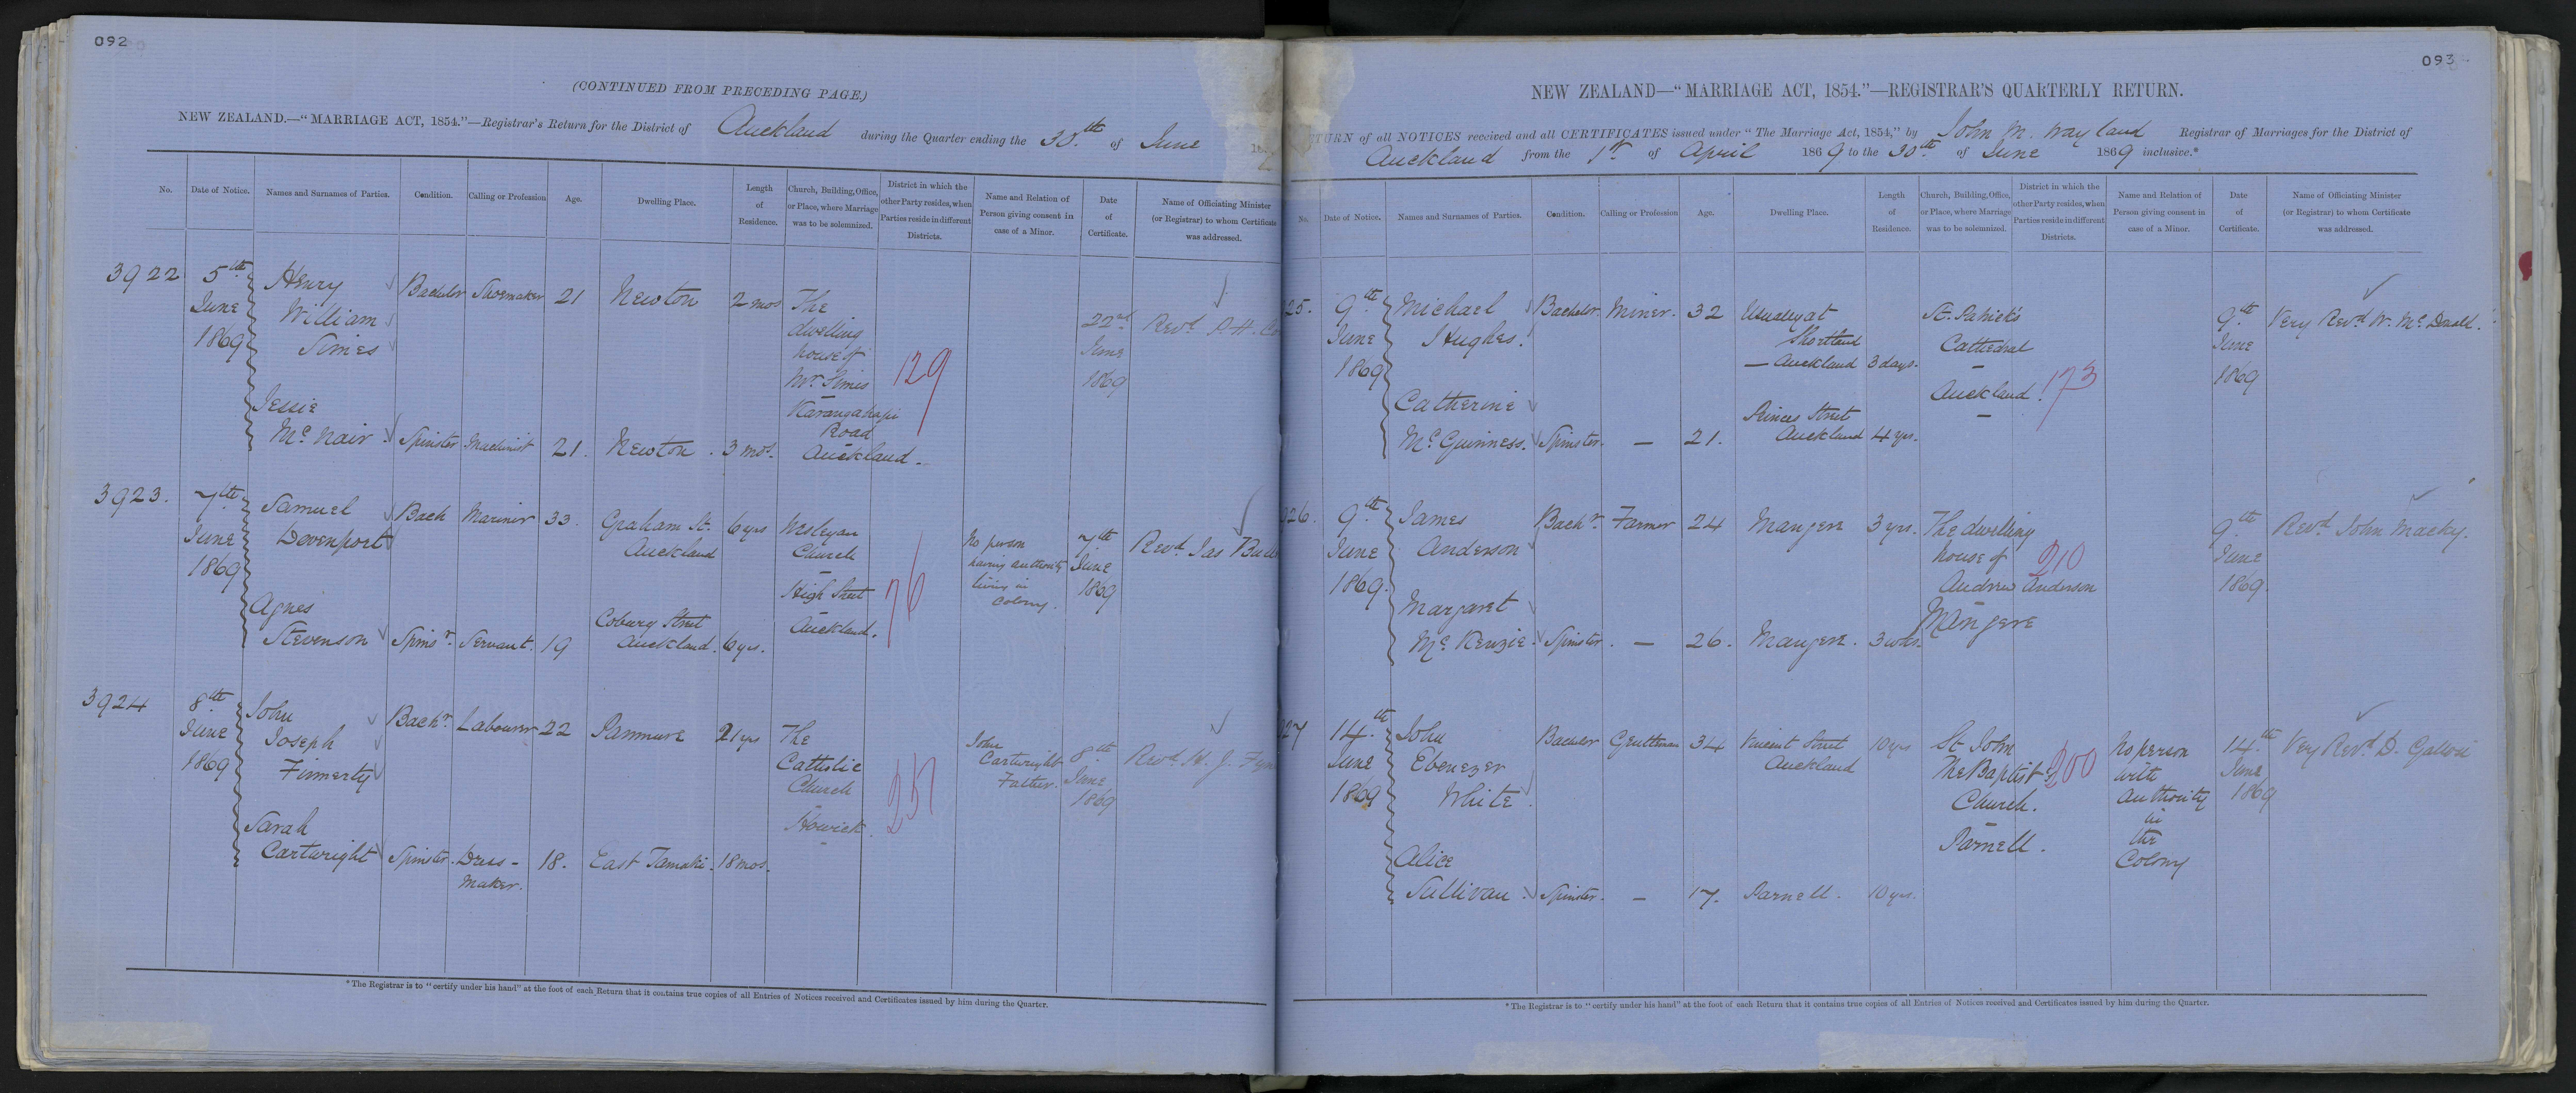 092
(CONTINUED FROM PRECEDING PAGE.)
NEW ZEALAND.—"MARRIAGE ACT, 1854."—Registrar's Return for the District of Auckland during the Quarter ending the 30th of June
No. Date of Notice. Names and Surnames of Parties. Condition. Calling or Profession Age. Dwelling Place. Length of Residence. Church, Building, Office, or Place, where Marriage was to be solemnized. District in which the other Party resides, when Parties reside in different Districts. Name and Relation of Person giving consent in case of a Minor. Date of Certificate. Name of Officiating Minister (or Registrar) to whom Certificate was addressed.
3922 5th June 1869
Henry William Simes Bachelor Shoemaker 21 Newton 2 mos
Jessie McNair Spinster Machinist 21. Newton. 3 mos.
The dwelling house of Mr. Simes
Karangahapi Road
Auckland.
129
22nd June 1869
Revd.
3923. 7th June 1869
Samuel Devenport Bach Mariner 33. Graham St. Auckland 6 yrs
Agnes Stevenson Spinsr. Servant. 19 Coburg Street Auckland. 6 yrs.
Wesleyan Church
High Street
Auckland.
76
No person having authority living in Colony.
7th June 1869
Revd. Jas
3924 8th June 1869
John Joseph Finnerty Bachr. Labourer 22 Panmure 21 yrs
Sarah Cartwright Spinster. Dress-maker. 18. East Tamaki. 18 mos.
The Catholic Church
Howick.
257
John Cartwright Father.
8th June 1869
Revd. H. J.
*The Registrar is to "certify under his hand" at the foot of each Return that it contains true copies of all Entries of Notices received and Certificates issued by him during the Quarter.
093
NEW ZEALAND—"MARRIAGE ACT, 1854."—REGISTRAR'S QUARTERLY RETURN.
TURN of all NOTICES received and all CERTIFICATES issued under "The Marriage Act, 1854," by John M. Wayland Registrar of Marriages for the District of
Auckland from the 1st of April 1869 to the 30th of June 1869 inclusive.*
No. Date of Notice. Names and Surnames of Parties. Condition. Calling or Profession Age. Dwelling Place. Length of Residence. Church, Building, Office, or Place, where Marriage was to be solemnized. District in which the other Party resides, when Parties reside in different Districts. Name and Relation of Person giving consent in case of a Minor. Date of Certificate. Name of Officiating Minister (or Registrar) to whom Certificate was addressed.
25. 9th June 1869
Michael Hughes. Bachelor. Miner. 32 Usually at Shortland — Auckland 3 days.
Catherine McGuinness. Spinster. — 21. Princes Street Auckland 4 yrs.
St. Patrick's Cathedral
Auckland.
173
9th June 1869
Very Revd. W. McDonald.
26. 9th June 1869.
James Anderson Bachr. Farmer 24 Mangere 3 yrs.
Margaret McKenzie. Spinster. — 26. Mangere. 3 wks.
The dwelling house of Andrew Anderson
Mangere
210
9th June 1869.
Revd. John Macky.
27 14th June 1869
John Ebenezer White. Bachelor Gentleman 34 Vincent Street Auckland 10 yrs
Alice Sullivan. Spinster. — 17. Parnell. 10 yrs.
St. John The Baptist's Church.
Parnell.
200
No person with authority in the Colony
14th June 1869
Very Revd. D.
*The Registrar is to "certify under his hand" at the foot of each Return that it contains true copies of all Entries of Notices received and Certificates issued by him during the Quarter.